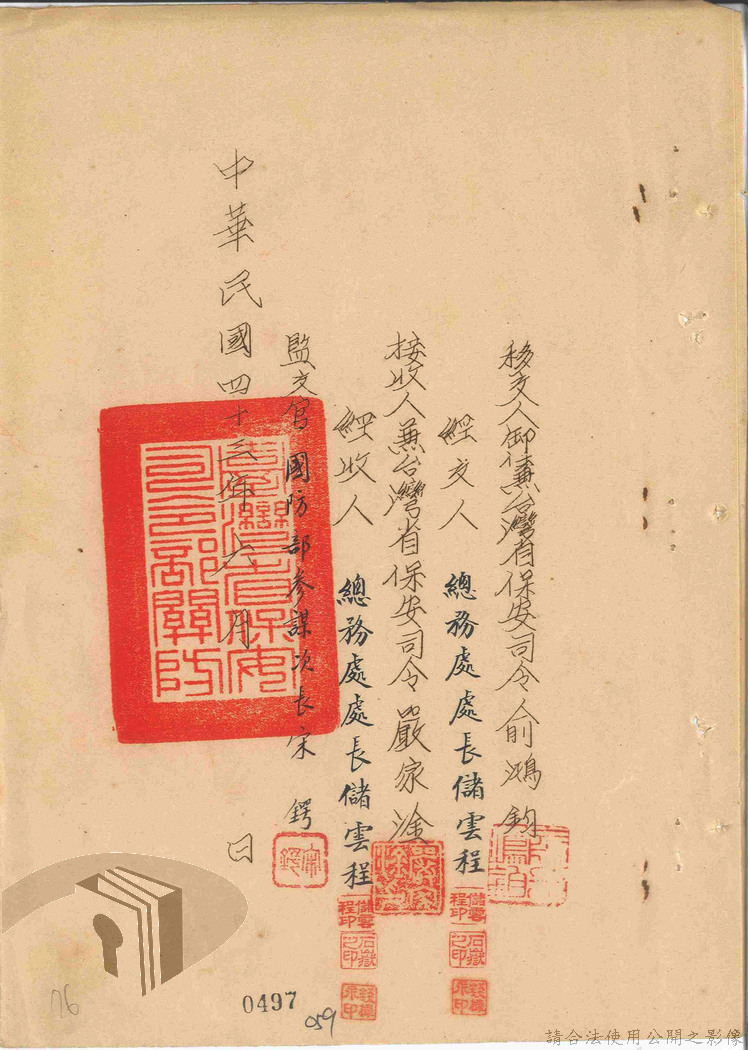 移交人卸任兼台灣省保安司令俞鴻鈞
經交人 總務處處長儲雲程
接收人兼台灣省保安司令嚴家淦
經收人 總務處處長儲雲程
監交官 國防部參謀次長宋鍔
中華民國四十三年六月 日
儲雲程印
儲雲程印
0497
059
76
請合法使用公開之影像